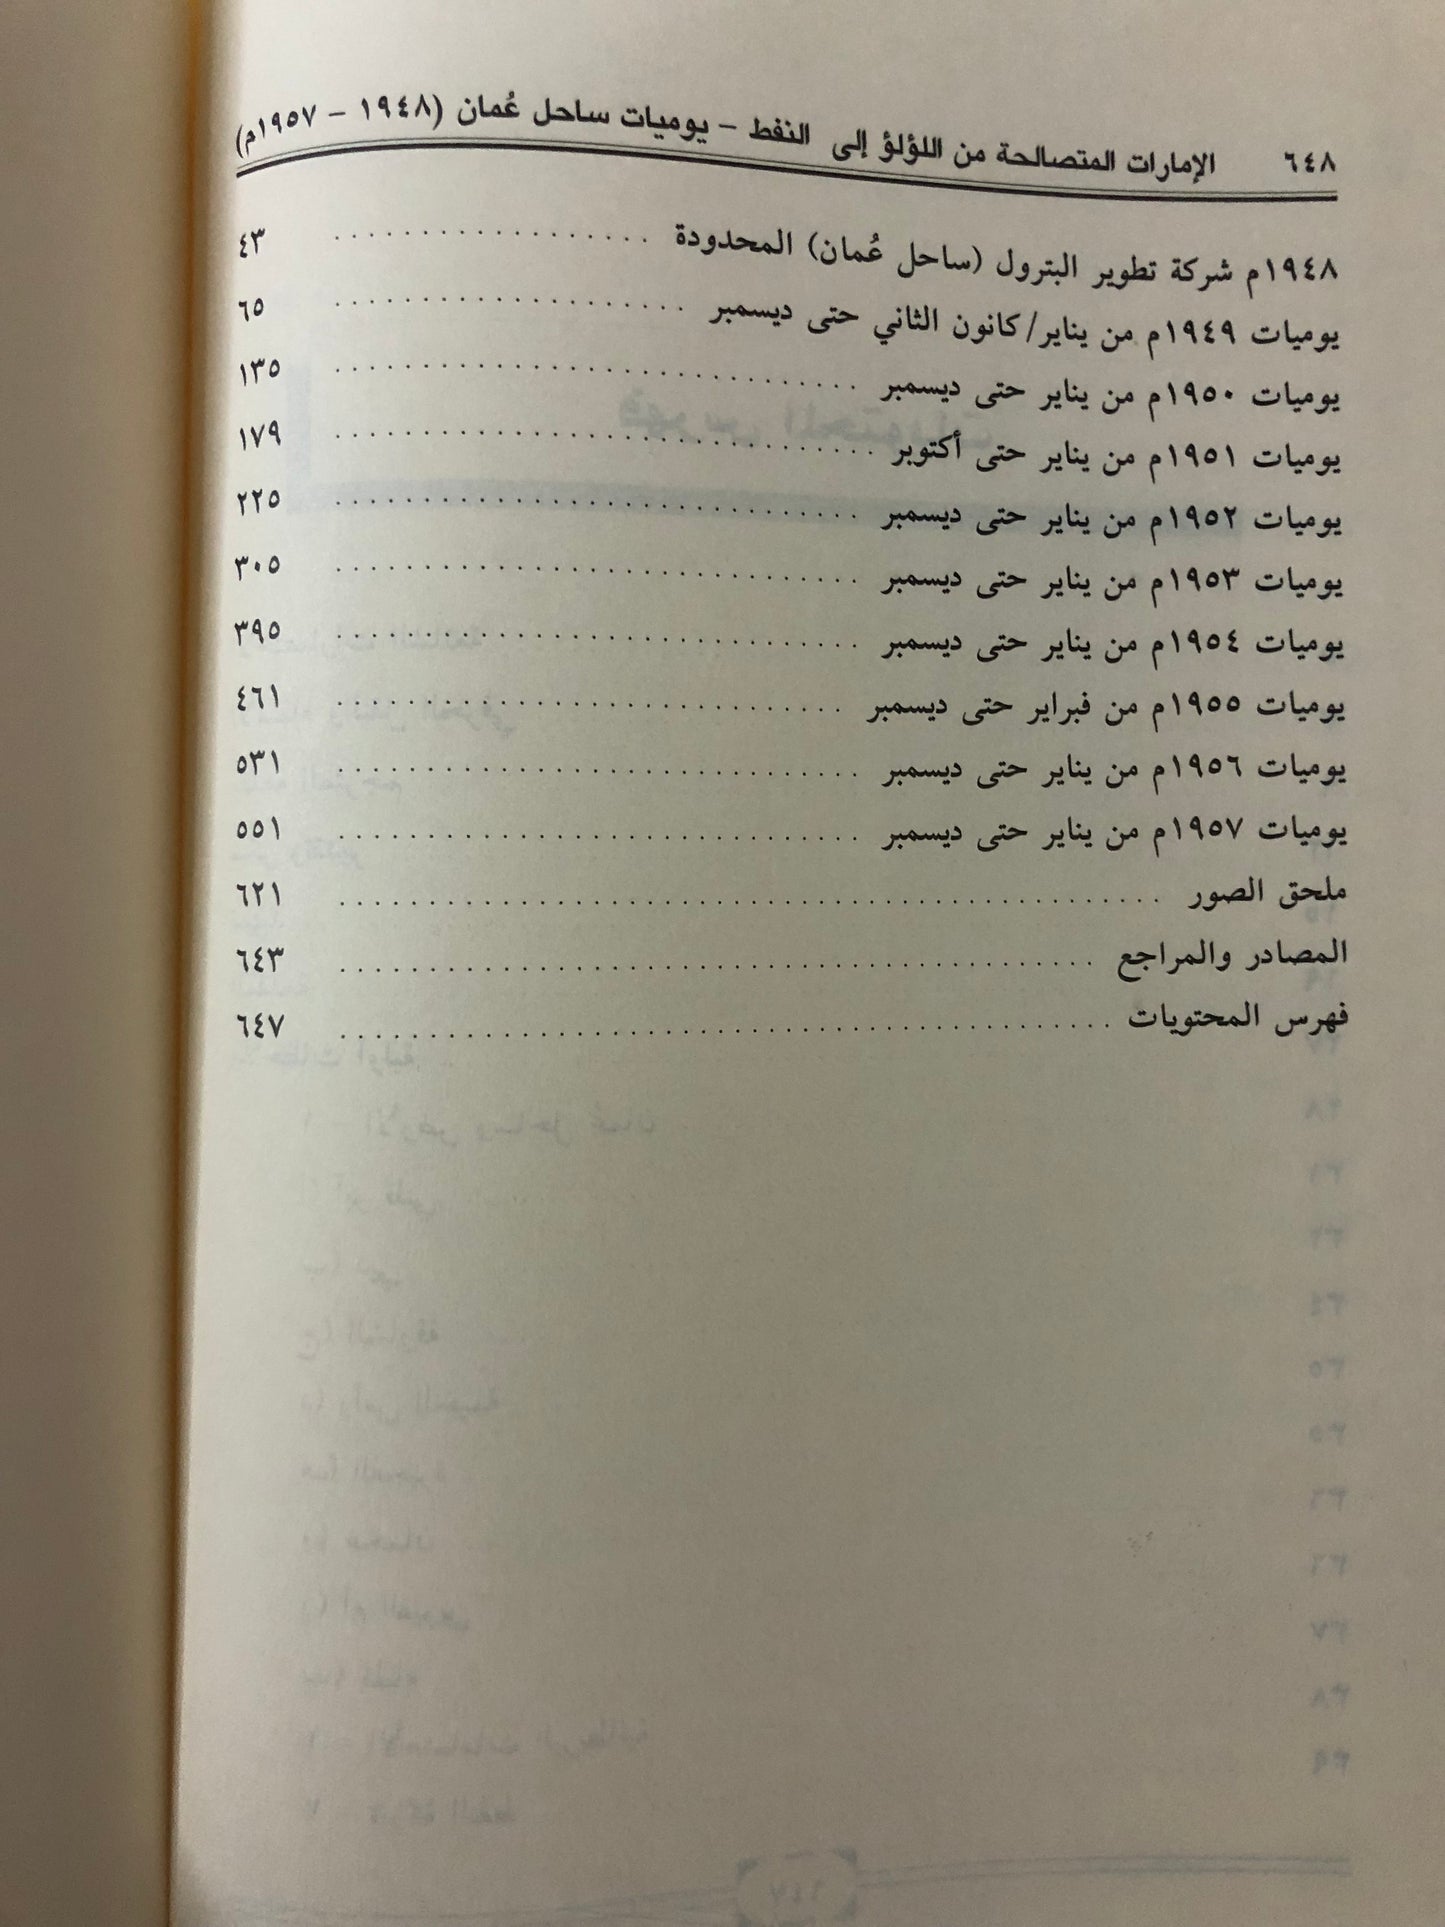 ٦٤٨ الإمارات المتصالحة من اللؤلؤ إلى النفط - يوميات ساحل عُمان (١٩٤٨ - ١٩٥٧م)
١٩٤٨م شركة تطوير البترول (ساحل عُمان) المحدودة .................. ٤٣
يوميات ١٩٤٩م من يناير/كانون الثاني حتى ديسمبر .................... ٦٥
يوميات ١٩٥٠م من يناير حتى ديسمبر .............................. ١٣٥
يوميات ١٩٥١م من يناير حتى أكتوبر .............................. ١٧٩
يوميات ١٩٥٢م من يناير حتى ديسمبر .............................. ٢٢٥
يوميات ١٩٥٣م من يناير حتى ديسمبر .............................. ٣٠٥
يوميات ١٩٥٤م من يناير حتى ديسمبر .............................. ٣٩٥
يوميات ١٩٥٥م من فبراير حتى ديسمبر .............................. ٤٦١
يوميات ١٩٥٦م من يناير حتى ديسمبر .............................. ٥٣١
يوميات ١٩٥٧م من يناير حتى ديسمبر .............................. ٥٥١
ملحق الصور .............................................. ٦٢١
المصادر والمراجع .......................................... ٦٤٣
فهرس المحتويات ........................................... ٦٤٧